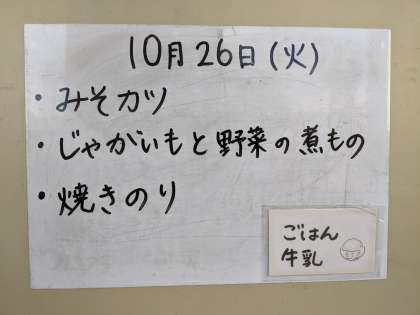 10月26日(火)
・みそカツ
・じゃがいもと野菜の煮もの
・焼きのり
ごはん
牛乳